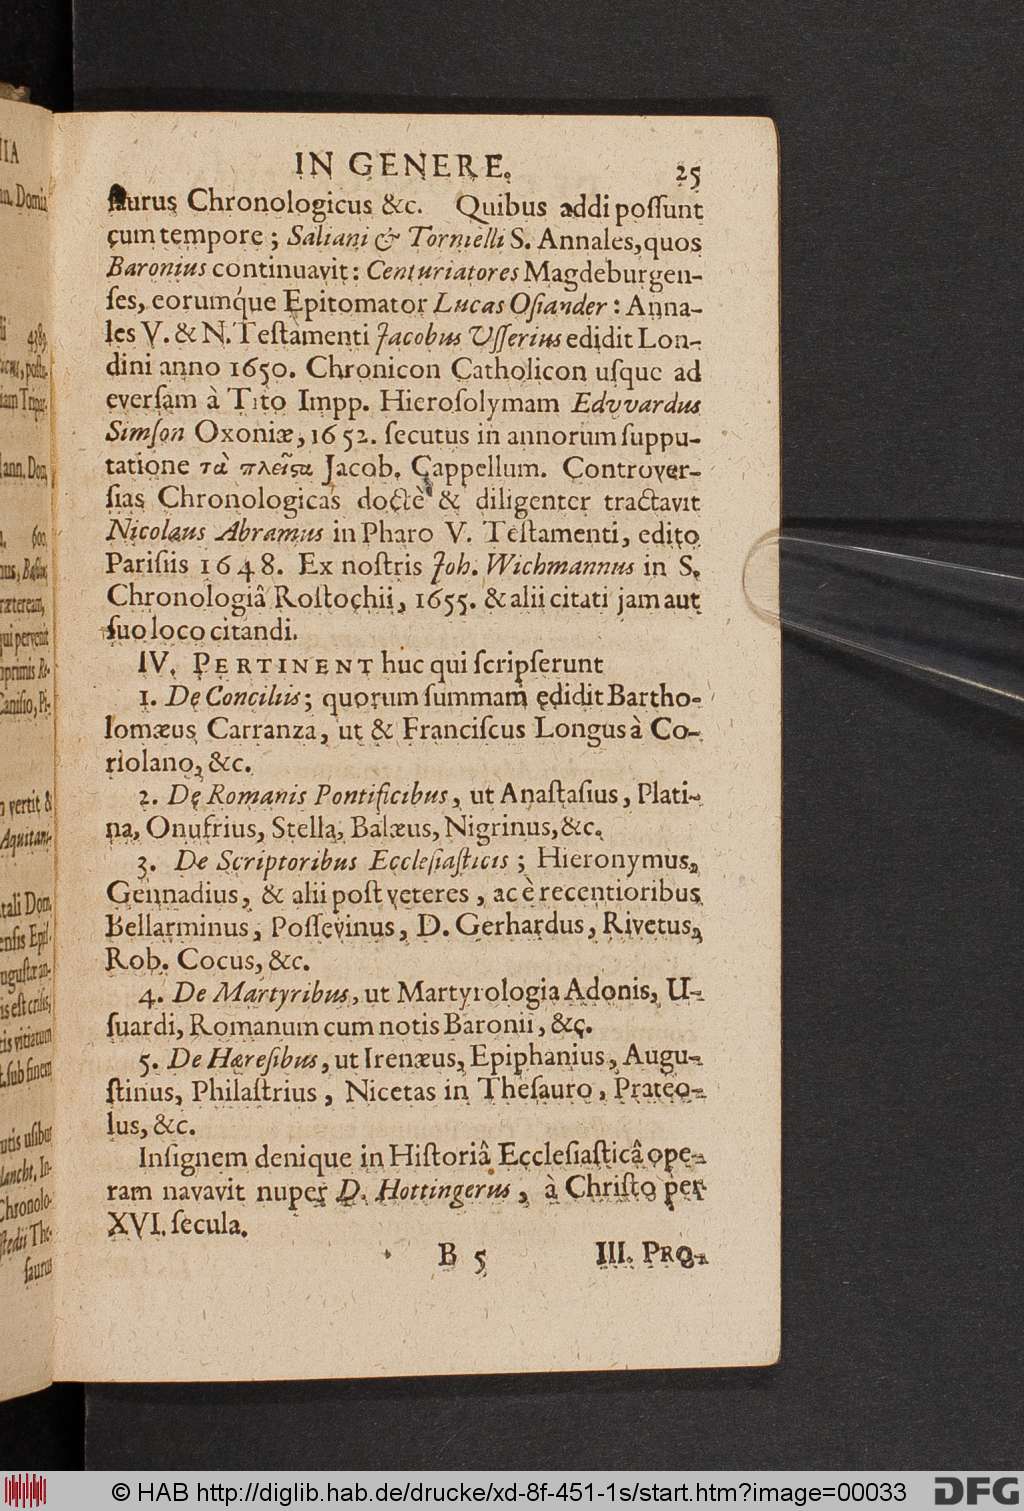 IN GENERE. 25
ſaurus Chronologicus &c. Quibus addi poſſunt
cum tempore; Saliani & Tornielli S. Annales, quos
Baronius continuavit: Centuriatores Magdeburgen-
ſes, eorumq́ue Epitomator Lucas Oſiander: Anna-
les V. & N. Teſtamenti Jacobus Uſſerius edidit Lon-
dini anno 1650. Chronicon Catholicon uſque ad
everſam à Tito Impp. Hieroſolymam Edvvardus
Simſon Oxoniæ, 1652. ſecutus in annorum ſuppu-
tatione τὰ πλεῖϛα Jacob. Cappellum. Controver-
ſias Chronologicas doctè & diligenter tractavit
Nicolaus Abramus in Pharo V. Teſtamenti, edito
Pariſiis 1648. Ex noſtris Joh. Wichmannus in S.
Chronologiâ Roſtochii, 1655. & alii citati jam aut
ſuo loco citandi.
IV. PERTINENT huc qui ſcripſerunt
1. De Conciliis; quorum ſummam edidit Bartho-
lomæus Carranza, ut & Franciſcus Longus à Co-
riolano, &c.
2. De Romanis Pontificibus, ut Anaſtaſius, Plati-
na, Onufrius, Stella, Balæus, Nigrinus, &c.
3. De Scriptoribus Eccleſiaſticis; Hieronymus,
Gennadius, & alii poſt veteres, ac è recentioribus
Bellarminus, Poſſevinus, D. Gerhardus, Rivetus,
Rob. Cocus, &c.
4. De Martyribus, ut Martyrologia Adonis, U-
ſuardi, Romanum cum notis Baronii, &c.
5. De Hæreſibus, ut Irenæus, Epiphanius, Augu-
ſtinus, Philaſtrius, Nicetas in Theſauro, Prateo-
lus, &c.
Inſignem denique in Hiſtoriâ Eccleſiaſticâ ope-
ram navavit nuper D. Hottingerus, à Chriſto per
XVI. ſecula.
B 5 III. PRO-
© HAB http://diglib.hab.de/drucke/xd-8f-451-1s/start.htm?image=00033
DFG